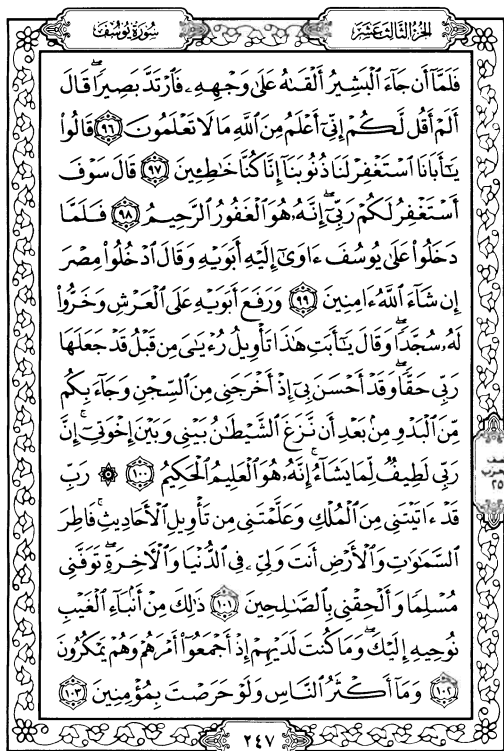 سُورَةُ يُوسُفَ
الجُزْءُ الثَّالِثَ عَشَرَ
فَلَمَّآ أَن جَآءَ ٱلْبَشِيرُ أَلْقَىٰهُ عَلَىٰ وَجْهِهِۦ فَٱرْتَدَّ بَصِيرًاۖ قَالَ
أَلَمْ أَقُل لَّكُمْ إِنِّىٓ أَعْلَمُ مِنَ ٱللَّهِ مَا لَا تَعْلَمُونَ ٩٦ قَالُوا۟
يَٰٓأَبَانَا ٱسْتَغْفِرْ لَنَا ذُنُوبَنَآ إِنَّا كُنَّا خَٰطِـِٔينَ ٩٧ قَالَ سَوْفَ
أَسْتَغْفِرُ لَكُمْ رَبِّىٓۖ إِنَّهُۥ هُوَ ٱلْغَفُورُ ٱلرَّحِيمُ ٩٨ فَلَمَّا
دَخَلُوا۟ عَلَىٰ يُوسُفَ ءَاوَىٰٓ إِلَيْهِ أَبَوَيْهِ وَقَالَ ٱدْخُلُوا۟ مِصْرَ
إِن شَآءَ ٱللَّهُ ءَامِنِينَ ٩٩ وَرَفَعَ أَبَوَيْهِ عَلَى ٱلْعَرْشِ وَخَرُّوا۟
لَهُۥ سُجَّدًاۖ وَقَالَ يَٰٓأَبَتِ هَٰذَا تَأْوِيلُ رُءْيَٰىَ مِن قَبْلُ قَدْ جَعَلَهَا
رَبِّى حَقًّاۖ وَقَدْ أَحْسَنَ بِىٓ إِذْ أَخْرَجَنِى مِنَ ٱلسِّجْنِ وَجَآءَ بِكُم
مِّنَ ٱلْبَدْوِ مِنۢ بَعْدِ أَن نَّزَغَ ٱلشَّيْطَٰنُ بَيْنِى وَبَيْنَ إِخْوَتِىٓۚ إِنَّ
رَبِّى لَطِيفٌ لِّمَا يَشَآءُۚ إِنَّهُۥ هُوَ ٱلْعَلِيمُ ٱلْحَكِيمُ ١٠٠ ۞ رَبِّ
قَدْ ءَاتَيْتَنِى مِنَ ٱلْمُلْكِ وَعَلَّمْتَنِى مِن تَأْوِيلِ ٱلْأَحَادِيثِۚ فَاطِرَ
ٱلسَّمَٰوَٰتِ وَٱلْأَرْضِ أَنتَ وَلِىِّۦ فِى ٱلدُّنْيَا وَٱلْءَاخِرَةِۖ تَوَفَّنِى
مُسْلِمًا وَأَلْحِقْنِى بِٱلصَّٰلِحِينَ ١٠١ ذَٰلِكَ مِنْ أَنۢبَآءِ ٱلْغَيْبِ
نُوحِيهِ إِلَيْكَۖ وَمَا كُنتَ لَدَيْهِمْ إِذْ أَجْمَعُوٓا۟ أَمْرَهُمْ وَهُمْ يَمْكُرُونَ
١٠٢ وَمَآ أَكْثَرُ ٱلنَّاسِ وَلَوْ حَرَصْتَ بِمُؤْمِنِينَ ١٠٣
٢٤٧